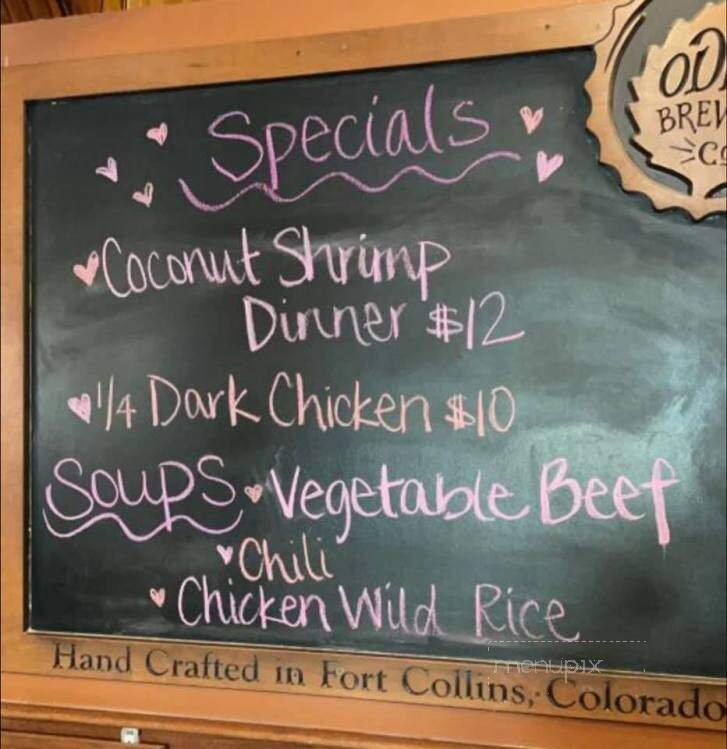 Specials
Coconut Shrimp
Dinner $12
1/4 Dark Chicken $10
Soups Vegetable Beef
Chili
Chicken Wild Rice
Hand Crafted in Fort Collins, Colorado
menupix